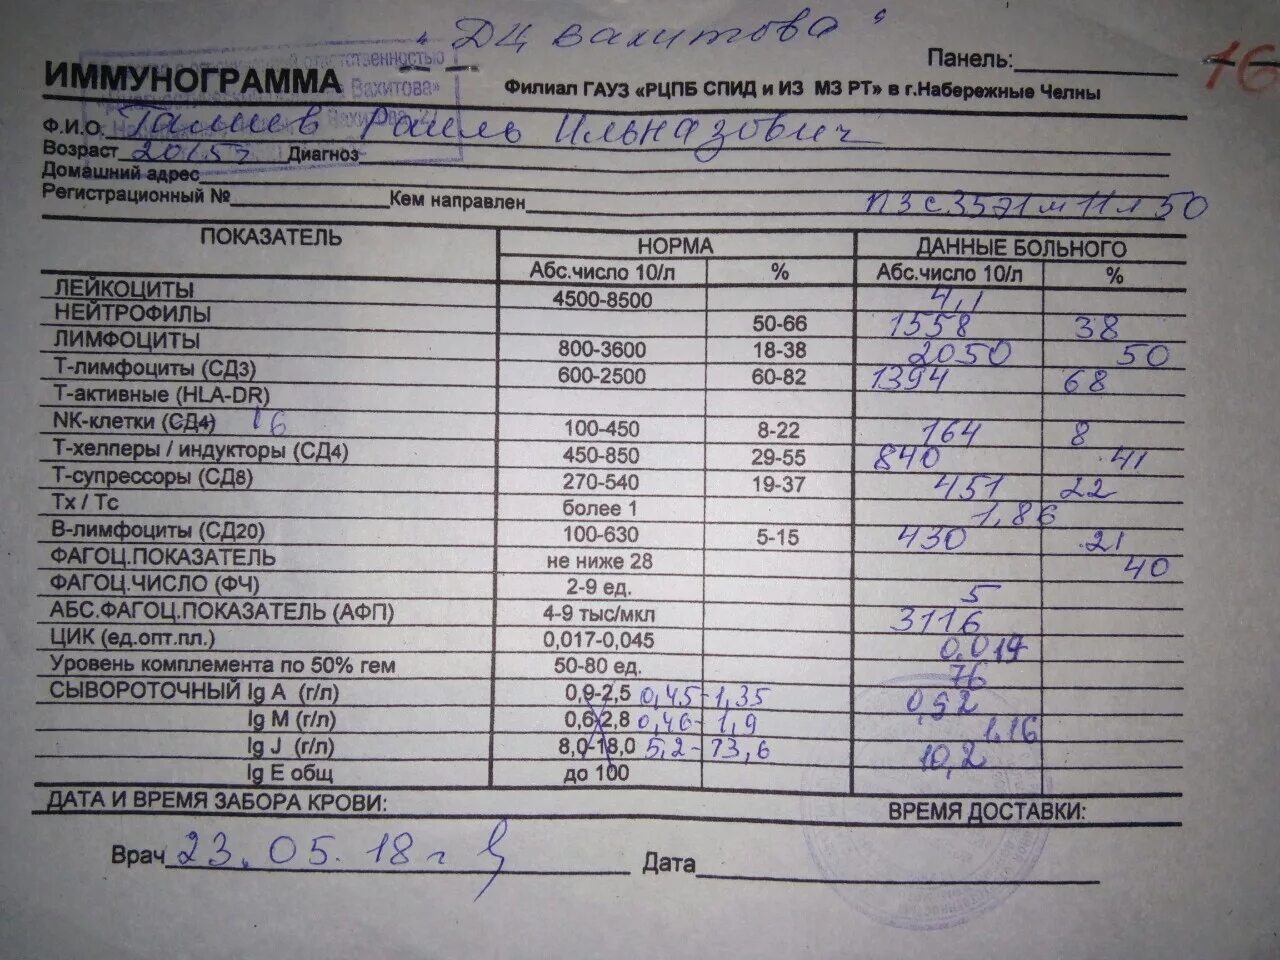 "ДЦ Вахитова"
Панель:
16
ИММУНОГРАММА
Филиал ГАУЗ «РЦПБ СПИД и ИЗ МЗ РТ» в г.Набережные Челны
Ф.И.О. Раиль Ильназович
Возраст 2015г Диагноз
Домашний адрес
Регистрационный № Кем направлен П3 с35 э1 м11 л50
ПОКАЗАТЕЛЬ НОРМА ДАННЫЕ БОЛЬНОГО
Абс.число 10/л % Абс.число 10/л %
ЛЕЙКОЦИТЫ 4500-8500 4,1
НЕЙТРОФИЛЫ 50-66 1558 38
ЛИМФОЦИТЫ 800-3600 18-38 2050 50
Т-лимфоциты (СД3) 600-2500 60-82 1394 68
Т-активные (HLA-DR)
NK-клетки (СД4) 16 100-450 8-22 164 8
Т-хелперы / индукторы (СД4) 450-850 29-55 840 41
Т-супрессоры (СД8) 270-540 19-37 451 22
Тх / Тс более 1 1,86
В-лимфоциты (СД20) 100-630 5-15 430 21
ФАГОЦ.ПОКАЗАТЕЛЬ не ниже 28 40
ФАГОЦ.ЧИСЛО (ФЧ) 2-9 ед. 5
АБС.ФАГОЦ.ПОКАЗАТЕЛЬ (АФП) 4-9 тыс/мкл 3116
ЦИК (ед.опт.пл.) 0,017-0,045 0,019
Уровень комплемента по 50% гем 50-80 ед. 76
СЫВОРОТОЧНЫЙ Ig A (г/л) 0,9-2,5 0,45-1,35 0,92
Ig M (г/л) 0,6-2,8 0,46-1,9 1,16
Ig J (г/л) 8,0-18,0 5,2-13,6 10,2
Ig E общ до 100
ДАТА И ВРЕМЯ ЗАБОРА КРОВИ: ВРЕМЯ ДОСТАВКИ:
Врач 23.05.18г Дата